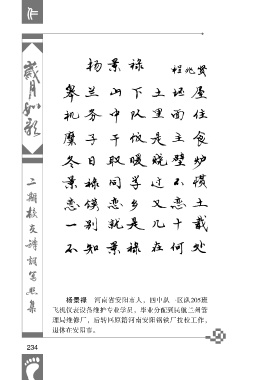 歲月如歌
杨景禄
程兆贤
皋兰山下土坯屋
机务中队里面住
糜子干饭是主食
冬日取暖烧壁炉
景禄同学过不惯
恋馍恋乡又恋土
一别就是几十载
不知景禄在何处
二期校友诗词写照集
杨景禄 河南省安阳市人，四中队一区队205班
飞机仪表设备维护专业学员。毕业分配到民航兰州管
理局维修厂，后转回原籍河南安阳钢铁厂技校工作，
退休在安阳市。
234